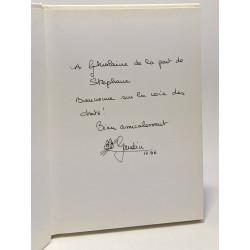 A Ghislaine de la part de
Stéphane
Bienvenue sur la voie des
Bien amicalement
10.96